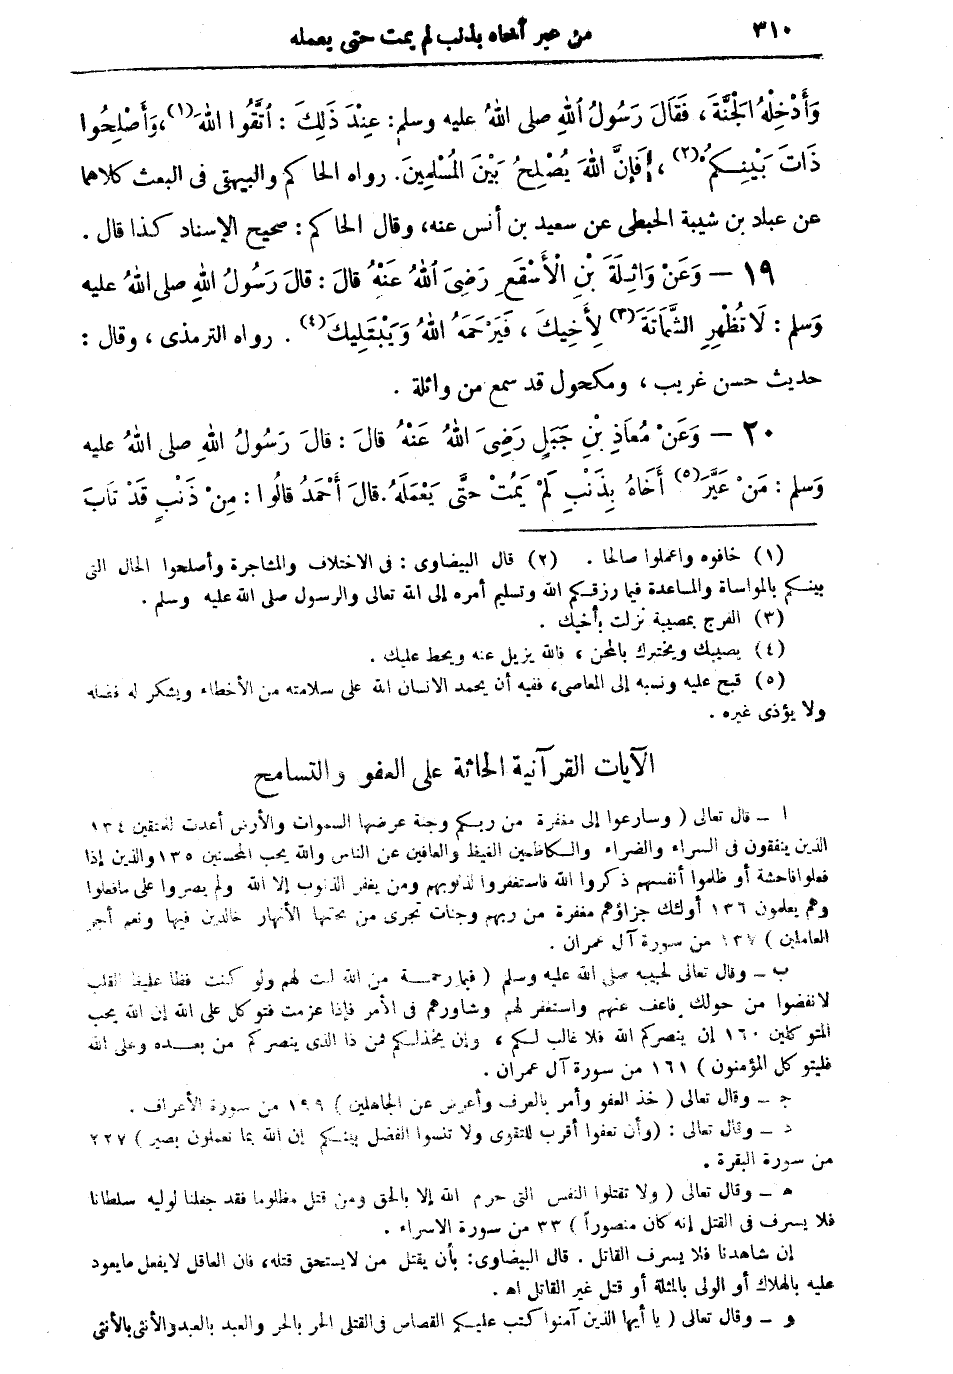 ٣١٠ من عير أخاه بذنب لم يمت حتى يعمله
وَأَدْخِلْهُ الْجَنَّةَ ، فَقَالَ رَسُولُ اللهِ صلى اللهُ عليه وسلم : عِنْدَ ذَلِكَ : اتَّقُوا اللهَ (١) ، وَأَصْلِحُوا
ذَاتَ بَيْنِكُمْ (٢) ، فَإِنَّ اللهَ يُصْلِحُ بَيْنَ الْمُسْلِمِينَ . رواه الحاكم والبيهقى فى البعث كلاهما
عن عباد بن شيبة الحبطى عن سعيد بن أنس عنه ، وقال الحاكم : صحيح الإسناد كذا قال .
١٩ — وَعَنْ وَاثِلَةَ بْنِ الْأَسْقَعِ رَضِىَ اللهُ عَنْهُ قَالَ : قَالَ رَسُولُ اللهِ صلى اللهُ عليه
وَسلم : لَا تُظْهِرِ الشَّمَاتَةَ (٣) لِأَخِيكَ ، فَيَرْحَمَهُ اللهُ وَيَبْتَلِيكَ (٤) . رواه الترمذى ، وقال :
حديث حسن غريب ، ومكحول قد سمع من واثلة .
٢٠ — وَعَنْ مُعَاذِ بْنِ جَبَلٍ رَضِىَ اللهُ عَنْهُ قَالَ : قَالَ رَسُولُ اللهِ صلى اللهُ عليه
وَسلم : مَنْ عَيَّرَ (٥) أَخَاهُ بِذَنْبٍ لَمْ يَمُتْ حَتَّى يَعْمَلَهُ . قَالَ أَحْمَدُ قَالُوا : مِنْ ذَنْبٍ قَدْ تَابَ
(١) خافوه واعملوا صالحا . (٢) قال البيضاوى : فى الاختلاف والمشاجرة وأصلحوا الحال التى
بينكم بالمواساة والمساعدة فيما رزقكم الله وتسليم أمره إلى الله تعالى والرسول صلى الله عليه وسلم .
(٣) الفرج بمصيبة نزلت بأخيك .
(٤) يصيبك ويختبرك بالمحن ، فالله يزيل عنه ويحط عليك .
(٥) قبح عليه ونسبه إلى المعاصى، ففيه أن يحمد الانسان الله على سلامته من الأخطاء ويشكر له فضله
ولا يؤذى غيره .
الآيات القرآنية الحاثة على العفو والتسامح
ا — قال تعالى ( وسارعوا إلى مغفرة من ربكم وجنة عرضها السموات والأرض أعدت للمتقين ١٣٤
الذين ينفقون فى السراء والضراء والكاظمين الغيظ والعافين عن الناس والله يحب المحسنين ١٣٥ والذين إذا
فعلوا فاحشة أو ظلموا أنفسهم ذكروا الله فاستغفروا لذنوبهم ومن يغفر الذنوب إلا الله ولم يصروا على مافعلوا
وهم يعلمون ١٣٦ أولئك جزاؤهم مغفرة من ربهم وجنات تجرى من تحتها الأنهار خالدين فيها ونعم أجر
العاملين ) ١٣٧ من سورة آل عمران .
ب — وقال تعالى لحبيبه صلى الله عليه وسلم ( فبما رحمة من الله لنت لهم ولو كنت فظا غليظ القلب
لانفضوا من حولك فاعف عنهم واستغفر لهم وشاورهم فى الأمر فإذا عزمت فتوكل على الله إن الله يحب
المتوكلين ١٦٠ إن ينصركم الله فلا غالب لكم ، وإن يخذلكم فمن ذا الذى ينصركم من بعده وعلى الله
فليتوكل المؤمنون ) ١٦١ من سورة آل عمران .
ج — وقال تعالى ( خذ العفو وأمر بالعرف وأعرض عن الجاهلين ) ١٩٩ من سورة الأعراف .
د — وقال تعالى : ( وأن تعفوا أقرب للتقوى ولا تنسوا الفضل بينكم إن الله بما تعملون بصير ) ٢٢٧
من سورة البقرة .
ه — وقال تعالى ( ولا تقتلوا النفس التى حرم الله إلا بالحق ومن قتل مظلوما فقد جعلنا لوليه سلطانا
فلا يسرف فى القتل إنه كان منصوراً ) ٣٣ من سورة الاسراء .
إن شاهدنا فلا يسرف القاتل . قال البيضاوى: بأن يقتل من لايستحق قتله، فان العاقل لايفعل مايعود
عليه بالهلاك أو الولى بالمثلة أو قتل غير القاتل اه .
و — وقال تعالى ( يا أيها الذين آمنوا كتب عليكم القصاص فى القتلى الحر بالحر والعبد بالعبد والأنثى بالأنثى